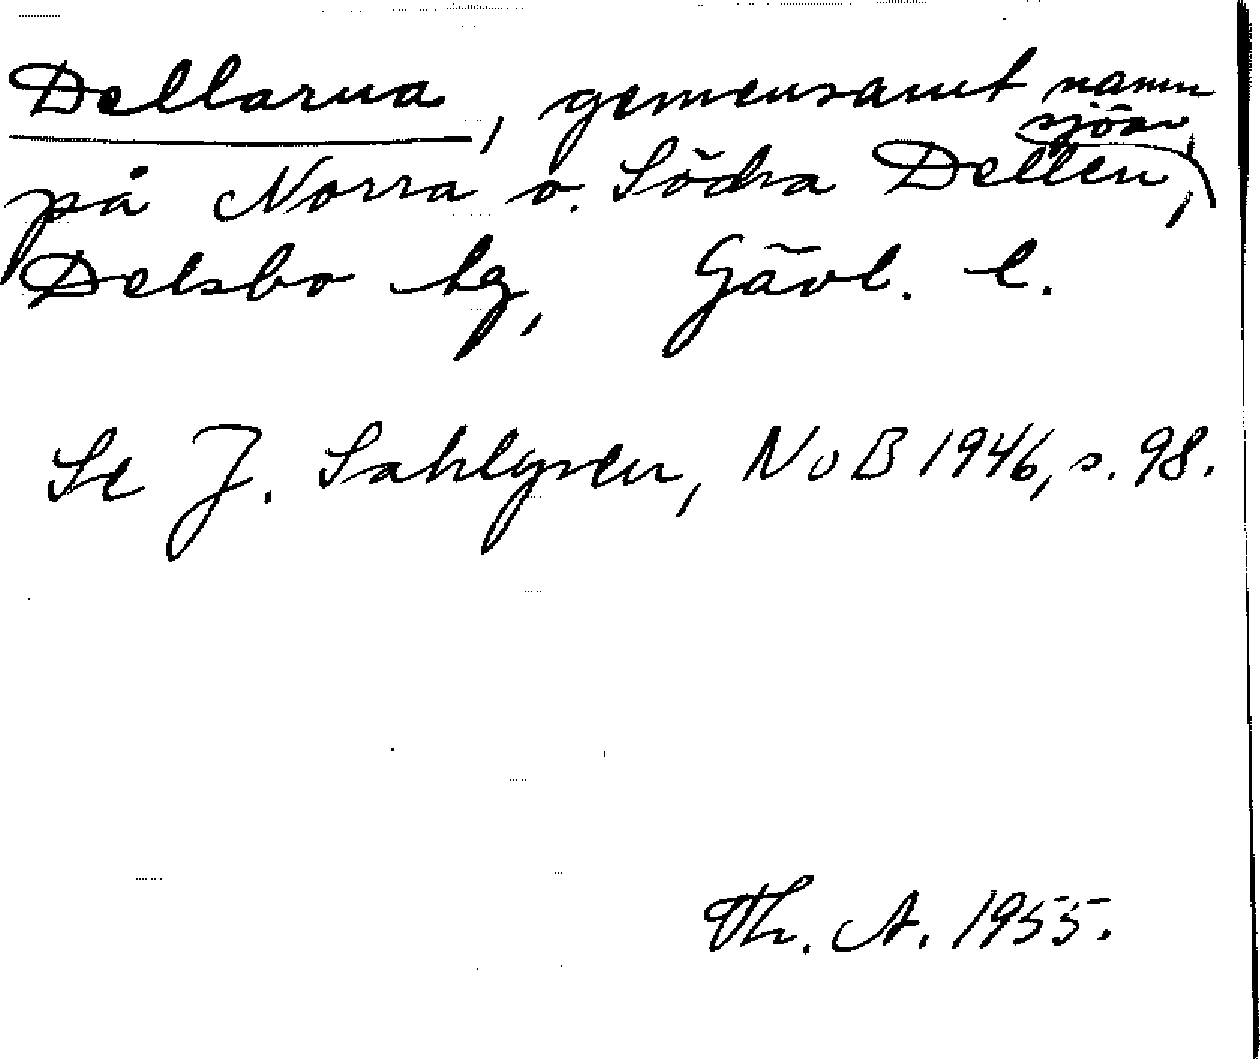 Dellarna, gemensamt namn
på Norra o. Södra Dellen, sjöar,
Delsbo sn, Gävl. l.
Se J. Sahlgren, NoB 1946, s. 98.
Th. A. 1955.